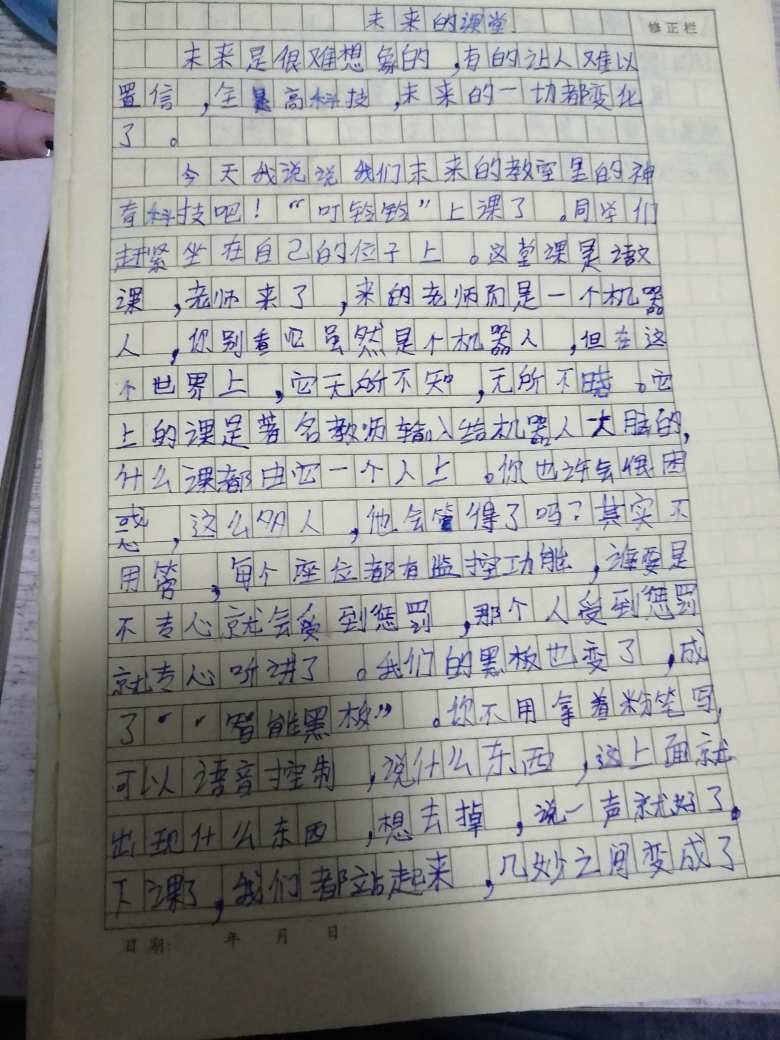 未来的课堂
修正栏
未来是很难想象的,有的让人难以
置信,全是高科技,未来的一切都变化
了。
今天我说说我们未来的教室里的神
奇科技吧!“叮铃铃”上课了。同学们
赶紧坐在自己的位子上。这堂课是语文
课,老师来了,来的老师而是一个机器
人,你别看它虽然是个机器人,但在这
个世界上,它无所不知,无所不晓。它
上的课是著名教师输入给机器人大脑的,
什么课都由它一个人上。你也许会很困
惑,这么多人,他会管得了吗?其实不
用管,每个座位都有监控功能,谁要是
不专心就会受到惩罚,那个人受到惩罚
就专心听讲了。我们的黑板也变了,成
了“智能黑板”。你不用拿着粉笔写,
可以语音控制,说什么东西,这上面就
出现什么东西,想去掉,说一声就好了。
下课了,我们都站起来,几秒之间变成了
日期: 年 月 日